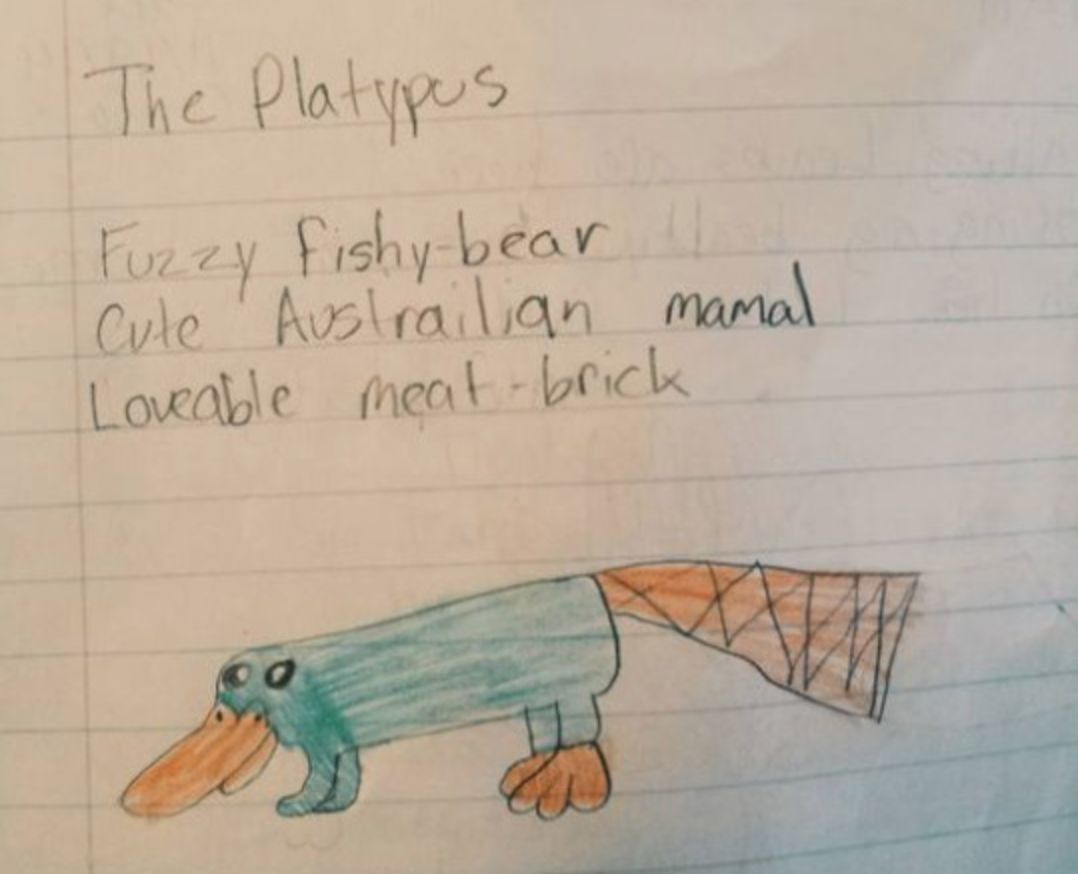 The Platypus
Fuzzy fishy-bear
Cute Austrailian mamal
Loveable meat-brick